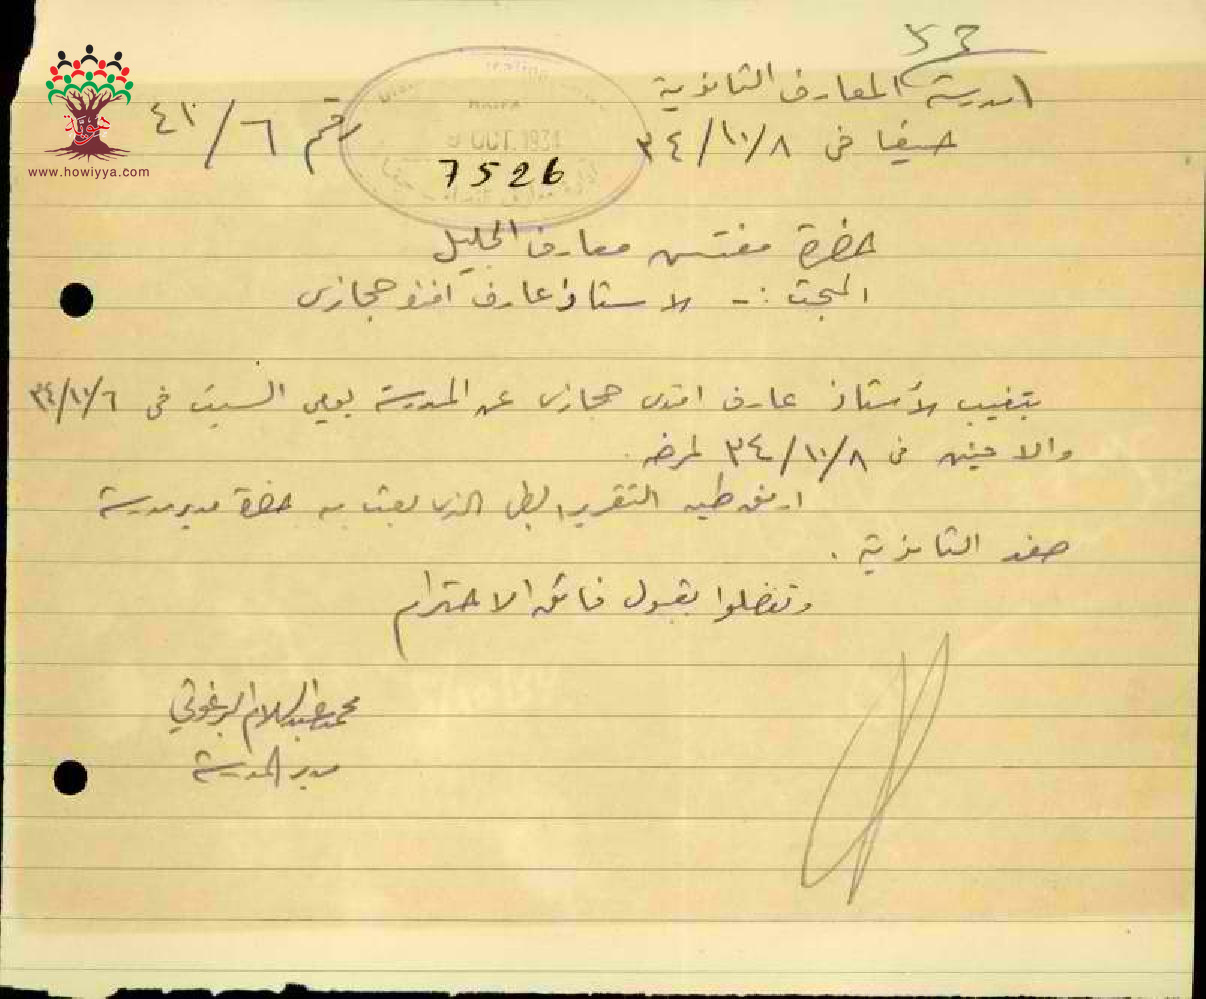 مدرسة المعارف الثانوية
حيفا في ٣٤/١٠/٨
رقم ٦/٤١٠
HAIFA
8 OCT. 1934
7526
www.howiyya.com
حضرة مفتش معارف الجليل
المبحث :- الاستاذ عارف افندي حجازي
بتغيب الأستاذ عارف افندي حجازي عن المدرسة يومي السبت في ٣٤/١٠/٦
والاثنين في ٣٤/١٠/٨ لمرضه.
ارفق طيه التقرير الطبي الذي بعث به حضرة مدير مدرسة
صفد الثانوية .
وتفضلوا بقبول فائق الاحترام
محمد عبد السلام البرغوثي
مدير المدرسة